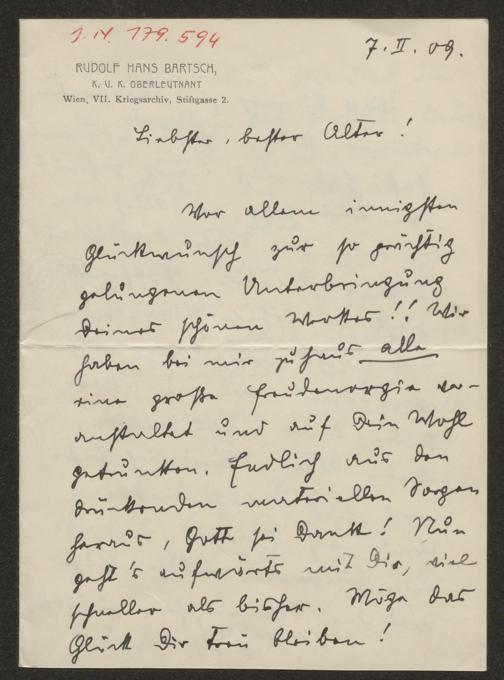 J. N. 179.594
7. II. 09.
RUDOLF HANS BARTSCH,
K. U. K. OBERLEUTNANT
Wien, VII. Kriegsarchiv, Stiftgasse 2.
Liebster, bester Alter!
Vor allem innigsten
Glückwunsch zur so prächtig
gelungenen Unterbringung
Deines schönen Werkes!! Wir
haben bei mir zuhaus alle
eine große Freudenorgie ver-
anstaltet und auf Dein Wohl
getrunken. Endlich aus den
drückenden materiellen Sorgen
heraus, Gott sei Dank! Nun
geht's aufwärts mit Dir, viel
schneller als bisher. Möge das
Glück Dir treu bleiben!